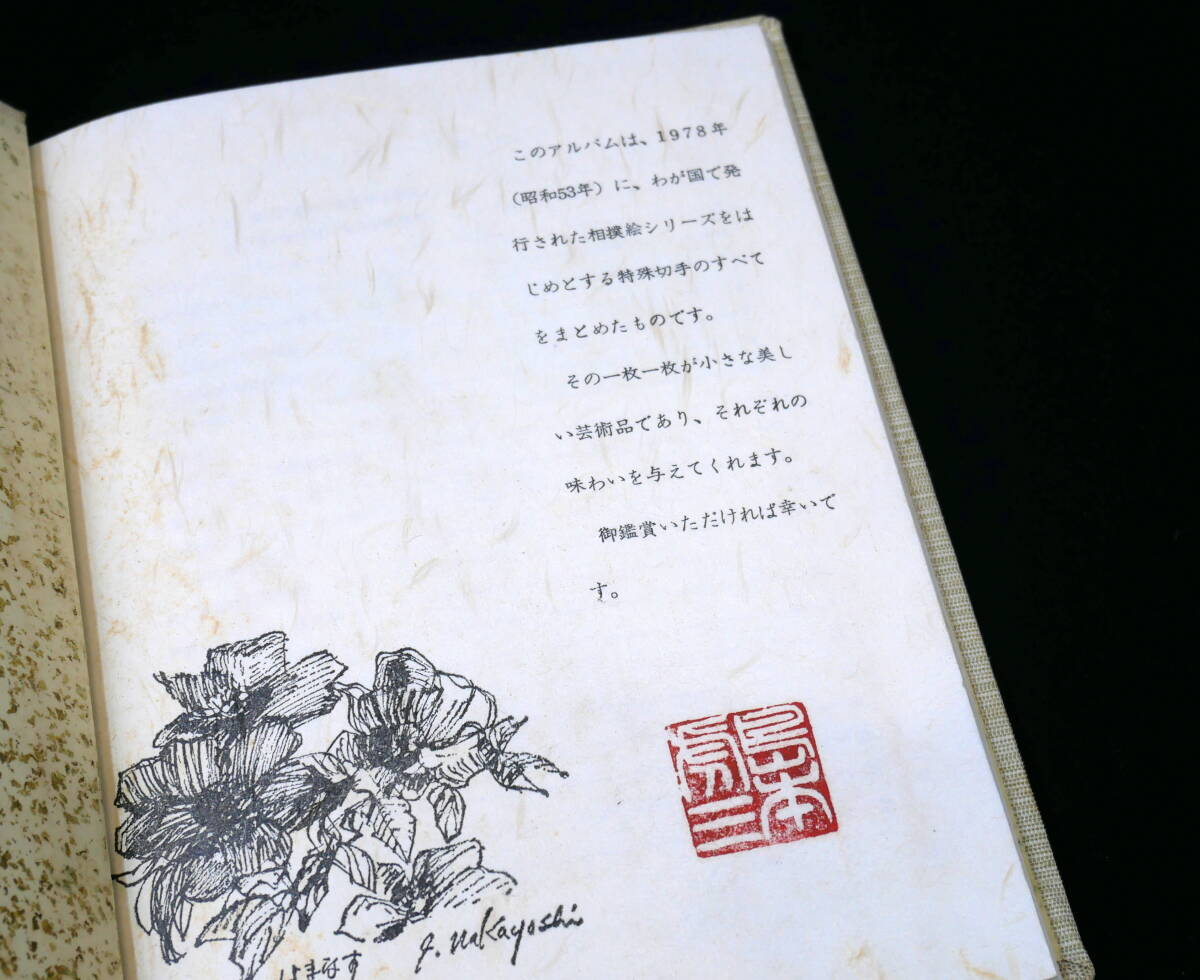 このアルバムは、1978年
（昭和53年）に、わが国で発
行された相撲絵シリーズをは
じめとする特殊切手のすべて
をまとめたものです。
その一枚一枚が小さな美し
い芸術品であり、それぞれの
味わいを与えてくれます。
御鑑賞いただければ幸いで
す。
はまなす
J. Nakayoshi